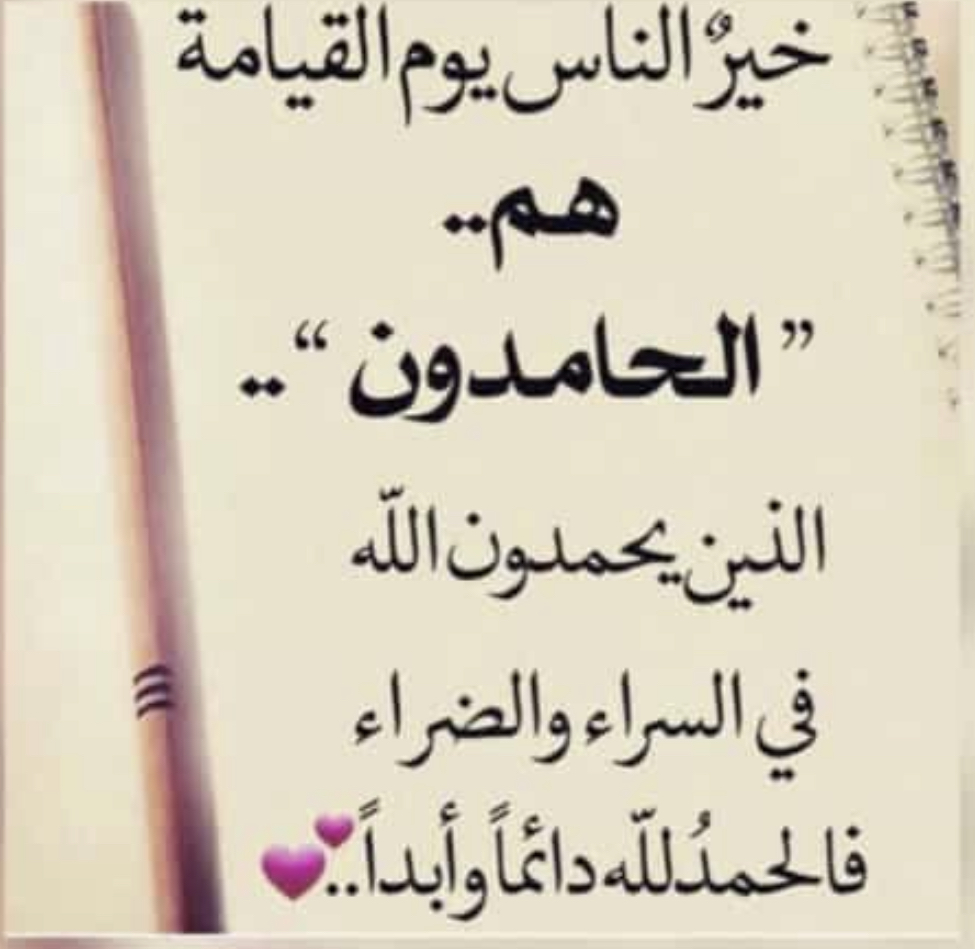 خيرٌ الناس يوم القيامة
هم..
” الحامدون “..
الذين يحمدون اللّه
في السراء والضراء
فالحمدُللّه دائماً وأبداً..💕